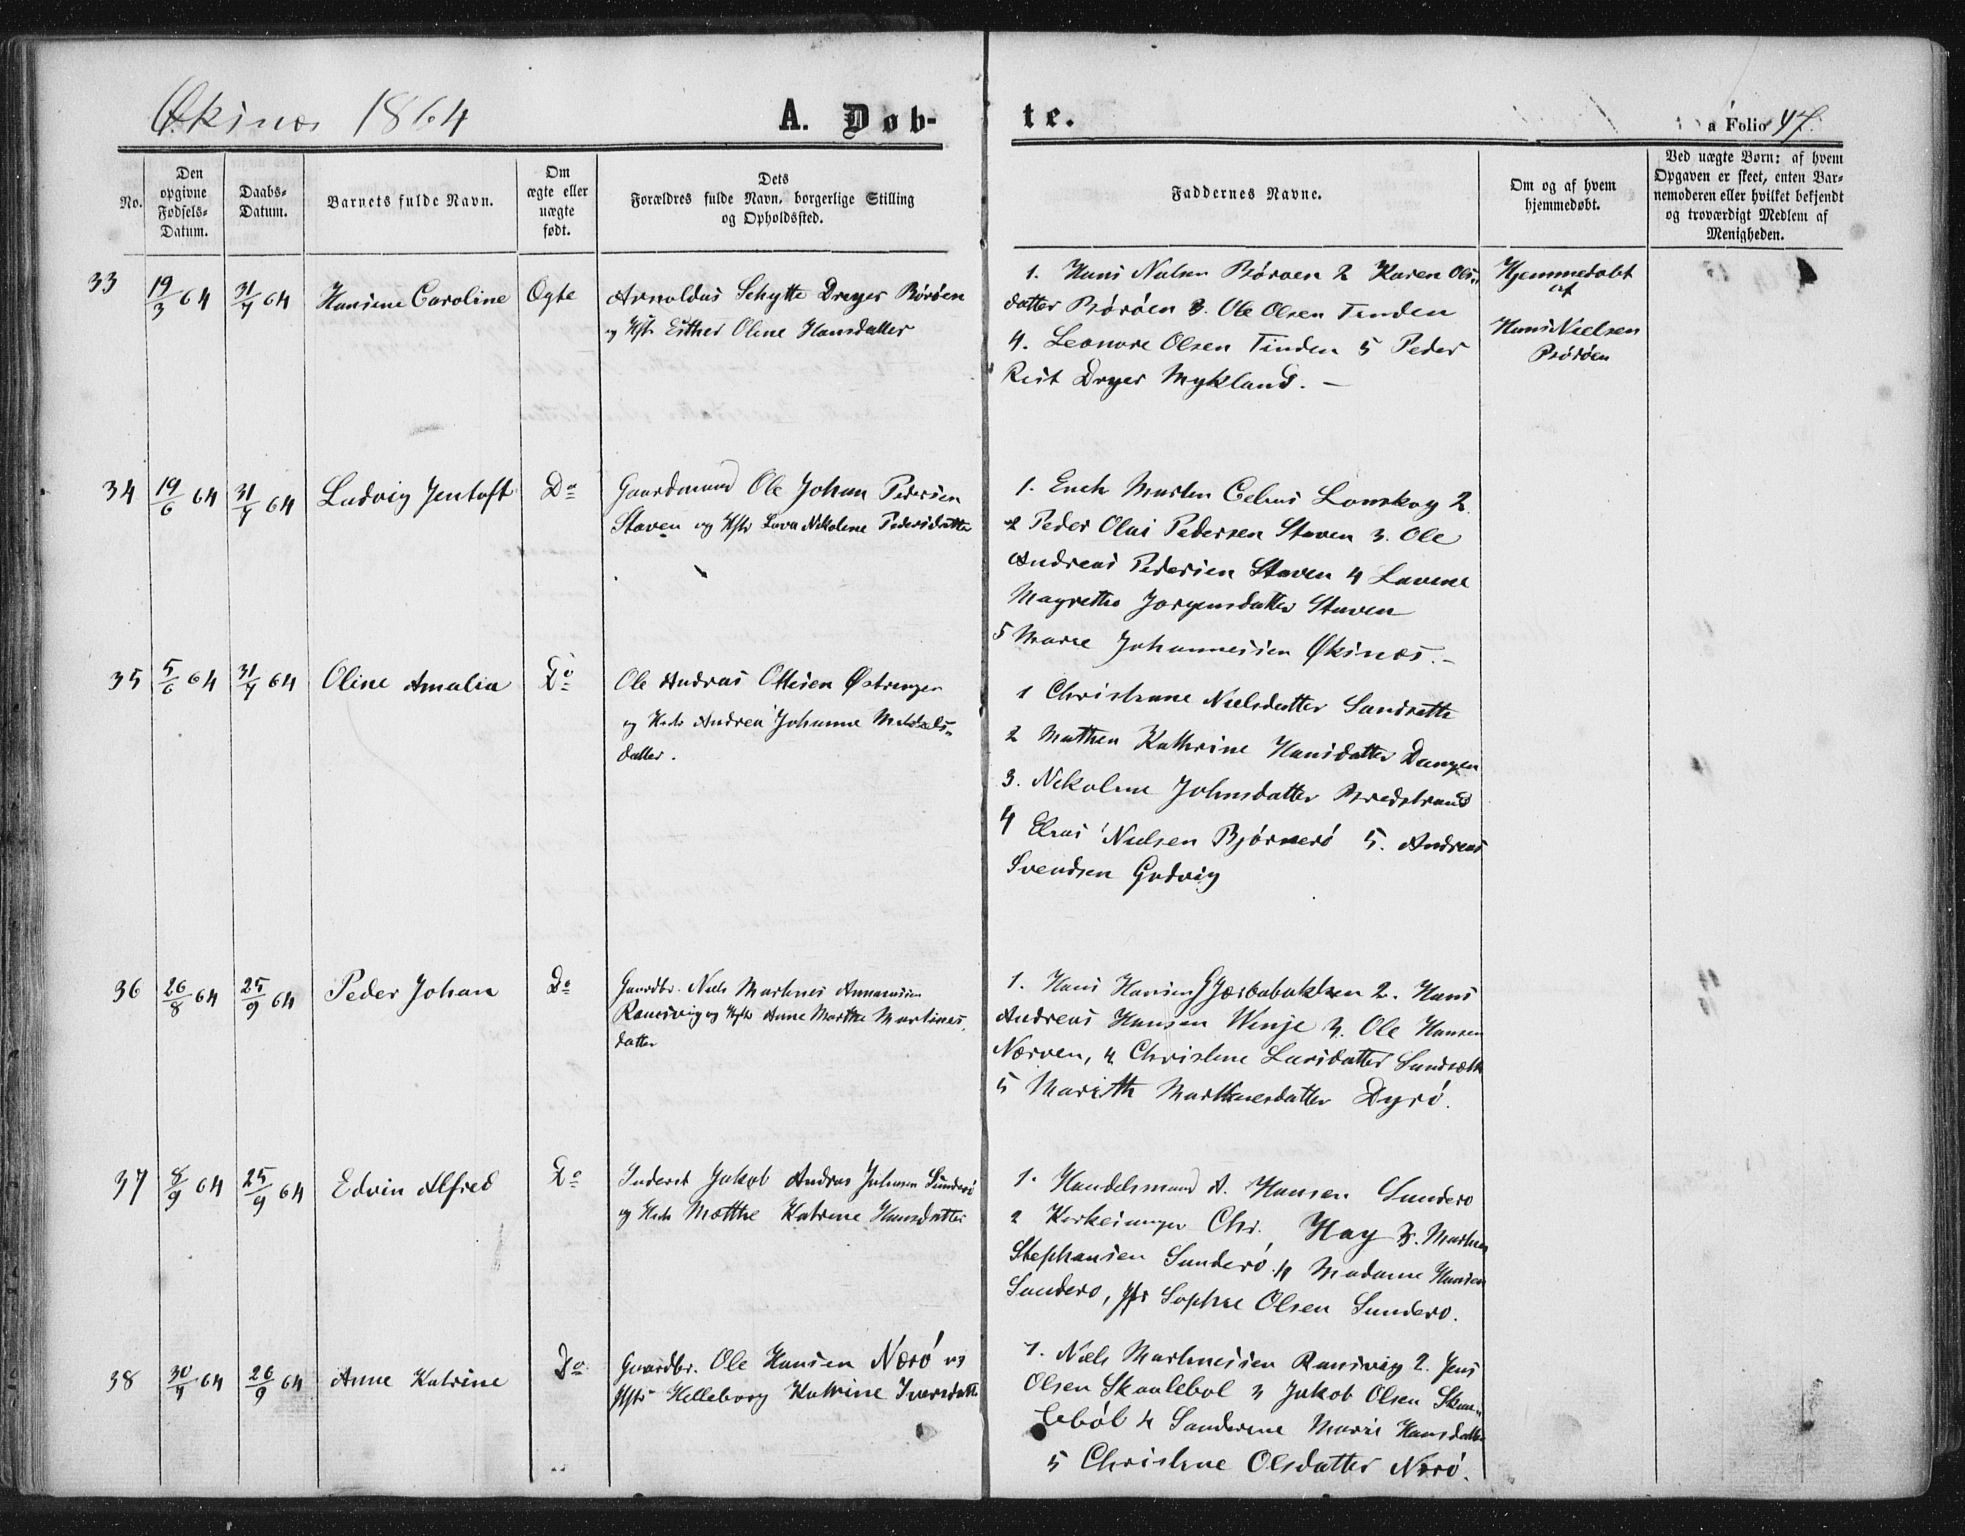 Økines 1864
A. Døb-
te.
a Folio 47.
No.
Den opgivne Fødsels-Datum.
Daabs-Datum.
Barnets fulde Navn.
Om ægte eller uægte født.
Dets
Forældres fulde Navn, borgerlige Stilling
og Opholdssted.
Faddernes Navne.
Om og af hvem
hjemmedøbt.
Ved uægte Børn: af hvem
Opgaven er skeet, enten Bar-
nemoderen eller hvilket bekjendt
og troværdigt Medlem af
Menigheden.
33 19/3 64 31/7 64 Hansine Caroline Ægte
Arnoldus Schytte Dreyer Børøen
og Hst Esther Oline Hansdatter
1. Hans Nielsen Børøen 2 Karen Ols-
datter Børøen 3. Ole Olsen Tinden
4. Leonore Olsen Tinden 5 Peder
Rist Dryer Mykland. —
Hjemmedøbt
af
Hans Nielsen
Børøen
34 19/6 64 31/7 64 Ludvig Jentoft Do
Gaardmand Ole Johan Pedersen
Staven og Hstr Lova Nikoline Pedersdatter
1. Martin Lonskog 2
2 Peder Olai Pedersen Staven 3. Ole
Andreas Pedersen Staven 4 Lovene
Magrethe Jørgensdatter Staven
5 Marie Johannessen Økines. –
35 5/6 64 31/7 64 Oline Amalia Do
Ole Andreas Ottesen Østrengen
og Hst Andrea Johanne
datter.
1 Christiane Nielsdatter Sandsette
2 Mathea Kathrine Hansdatter Dangen
3. Nikoline Johnsdatter Bredstrand
4 Elias Nielsen Bjørnerø 5. Andreas
Svendsen Godvig
36 26/8 64 25/9 64 Peder Johan Do
Gaardbr. Niels Martines
Ransvig og Hstr Anne Marthe Martines
datter
1. Hans Hansen 2. Hans
Andreas Hansen Winje 3. Ole Hansen
Nærøen, 4 Christine Larsdatter Sandsæth
5 Martinesdatter Dyrø.
37 8/9 64 25/9 64 Edvin Alfred Do
Inderst Jakob Andreas Johnsen Sunderø
og Hst Mætthe Katrine Hansdatter
1. Handelsmand A. Hansen Sunderø
2 Kirkesanger Chr. Hay 3. Martin
Stephansen Sunderø 4 Madame Hansen
Sunderø, Jfr Sophie Olsen Sunderø.
38 30/7 64 26/9 64 Anne Katrine Do
Gaardbr. Ole Hansen Nærø og
Hstr Helleborg Katrine Iversdatter
1. Niels Martinessen Ransvig 2. Jens
Olsen Skaalebøl 3 Jakob Olsen Skaa-
lebøl 4 Sanderine Marie Hansdatter
5 Christine Olsdatter Nærø.